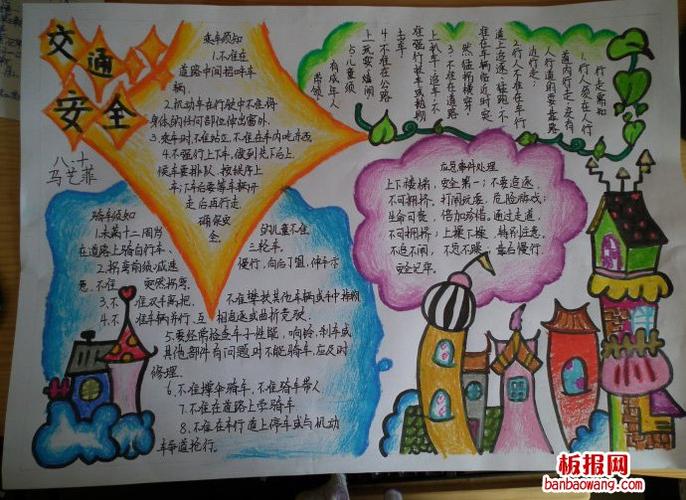 交通
安全
八.十
马艺菲
乘车须知
1.不准在
道路中间招呼车
辆.
2.机动车在行驶中不准将
身体的任何部位伸出窗外.
3.乘车时,不准站立,不准在车内吃东西
4.不强行上下车,做到先下后上
候车要排队,按秩序上
车;下车后要等车辆开
走后再行走
确保安
全.
行走需知
1.行人须在人行
道内行走,没有
人行道的要靠路
边行走;
2.行人不准在车行
道上追逐、猛跑,不
准在车辆临近时突
然猛拐横穿;
3.不准在道路
上扒车、追车,不
准强行拦车或抛物
击车.
4.不准在公路
上玩耍、嬉闹
5.儿童须
有成年人
带领.
应急事件处理
上下楼梯,安全第一;不要追逐,
不可拥挤,打闹玩疲,危险游戏;
生命可贵,倍加珍惜,通过走道,
不可拥挤;上操下操,特别注意.
不追不闹,不怠不躁;靠右慢行.
安全记牢.
骑车须知
1.未满十二周岁
在道路上骑自行车、
三轮车.
2.拐弯前须减速
慢行,向后了望,伸手示
意,不准突然拐弯.
3.不准双手离把,不准攀扶其他车辆或手中持物
4.不准车辆并行、互相追逐或曲折竞驶.
5.要经常检查车子性能,响铃、刹车或
其他部件有问题时不能骑车,应及时
修理.
6.不准撑伞骑车,不准骑车带人.
7.不准在道路上学骑车
8.不准在车行道上停车或与机动
车争道抢行.
板报网
banbaowang.com